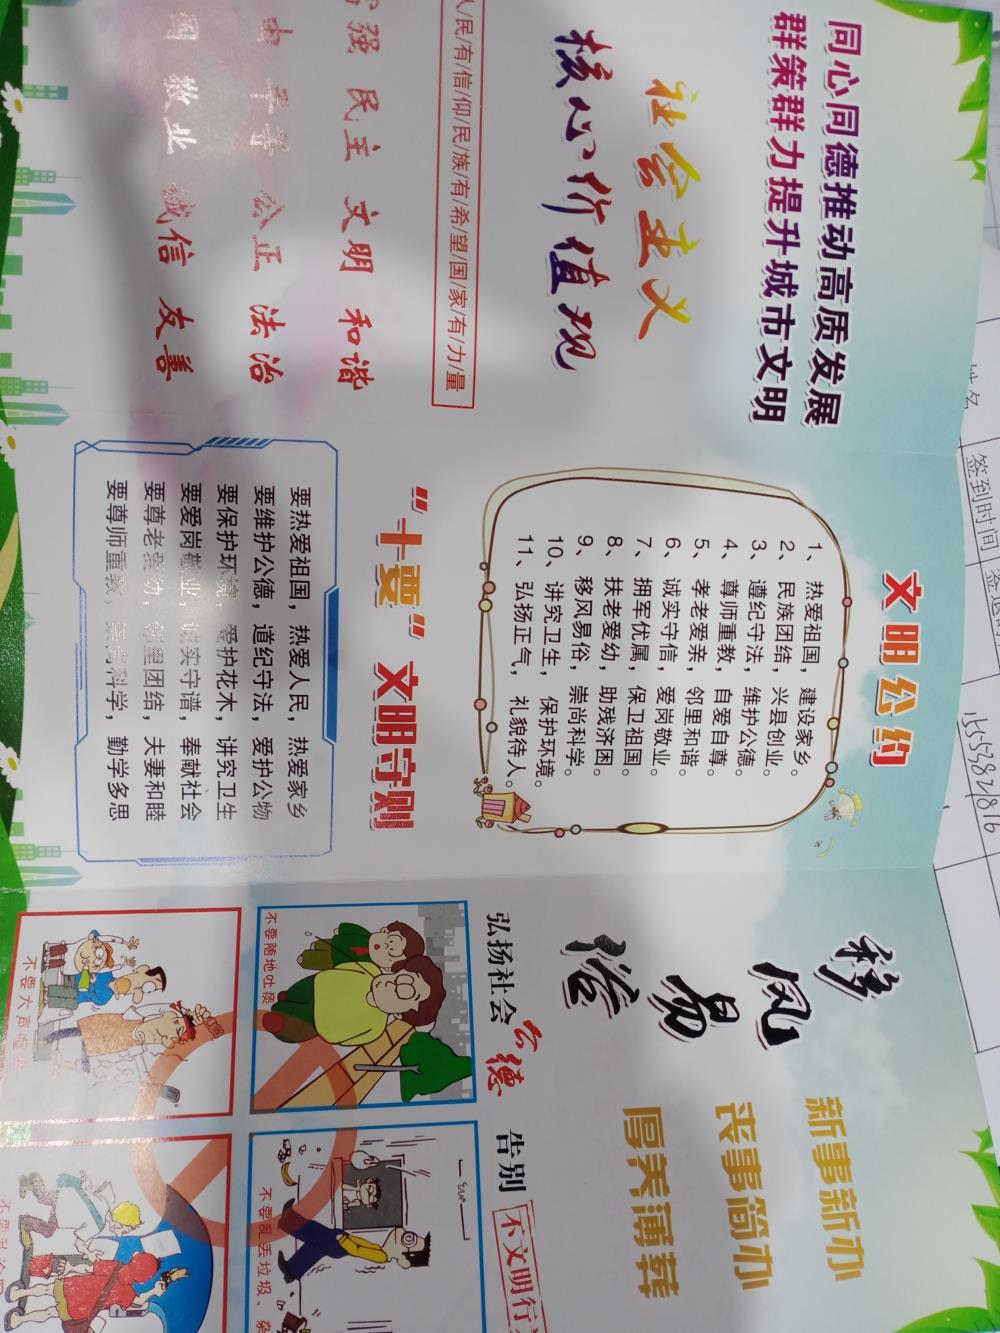 同心同德推动高质发展
群策群力提升城市文明
社会主义
核心价值观
人/民/有/信/仰/民/族/有/希/望/国/家/有/力/量
强 民主 文明 和谐
由 平等 公正 法治
国 敬业 诚信 友善
文明公约
1、热爱祖国，建设家乡。
2、民族团结，兴县创业。
3、遵纪守法，维护公德。
4、尊师重教，自爱自尊。
5、孝老爱亲，邻里和谐。
6、诚实守信，爱岗敬业。
7、拥军优属，保卫祖国。
8、扶老爱幼，助残济困。
9、移风易俗，崇尚科学。
10、讲究卫生，保护环境。
11、弘扬正气，礼貌待人。
“十要”文明守则
要热爱祖国，热爱人民，热爱家乡
要维护公德，道纪守法，爱护公物
要保护环境，爱护花木，讲究卫生
要爱岗敬业，诚实守谱，奉献社会
要尊老爱幼，邻里团结，夫妻和睦
要尊师重教，崇尚科学，勤学多思
移风
易
俗
新事新办
丧事简办
厚养薄葬
弘扬社会公德 告别 不文明行
不要随地吐痰
不要乱丢垃圾、杂
不要大声喧
不要乱
姓名
签到时间
15553821816